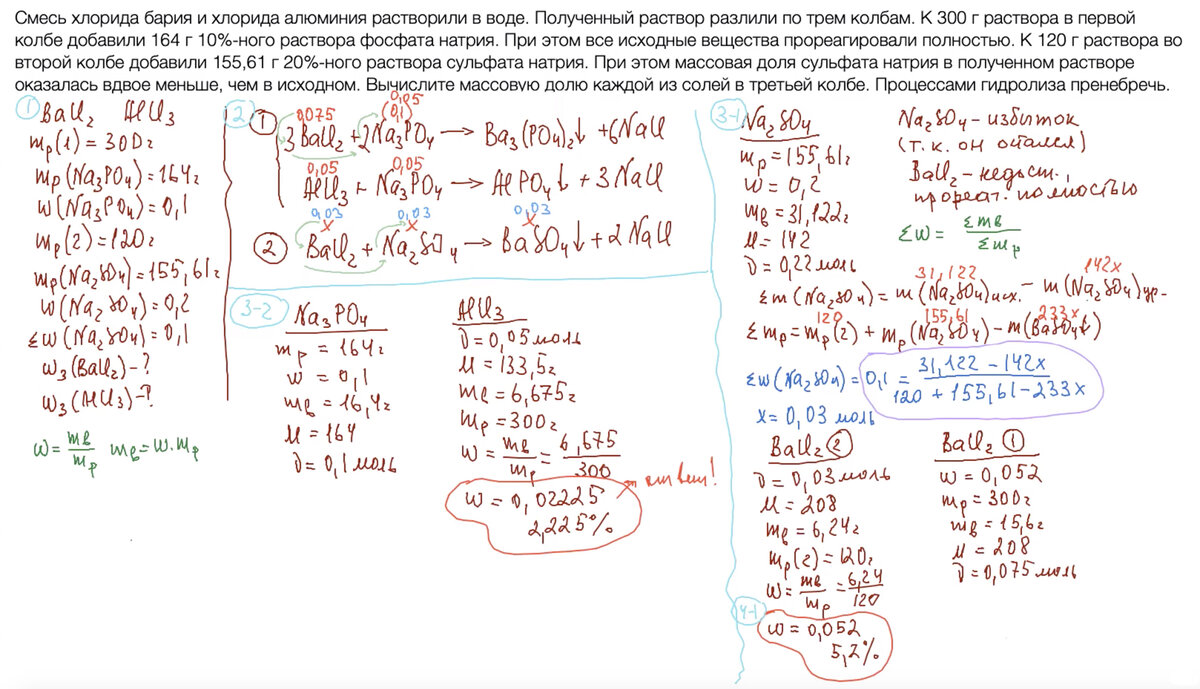 Смесь хлорида бария и хлорида алюминия растворили в воде. Полученный раствор разлили по трем колбам. К 300 г раствора в первой
колбе добавили 164 г 10%-ного раствора фосфата натрия. При этом все исходные вещества прореагировали полностью. К 120 г раствора во
второй колбе добавили 155,61 г 20%-ного раствора сульфата натрия. При этом массовая доля сульфата натрия в полученном растворе
оказалась вдвое меньше, чем в исходном. Вычислите массовую долю каждой из солей в третьей колбе. Процессами гидролиза пренебречь.
① BaCl₂ AlCl₃
mр(1) = 300г
mр(Na₃PO₄) = 164г
w(Na₃PO₄) = 0,1
mр(2) = 120г
mр(Na₂SO₄) = 155,61г
w(Na₂SO₄) = 0,2
Σw(Na₂SO₄) = 0,1
w₃(BaCl₂) - ?
w₃(AlCl₃) - ?
w = mв/mр mв = w·mр
②
0,075 0,05
(0,1)
① 3BaCl₂ + 2Na₃PO₄ → Ba₃(PO₄)₂↓ + 6NaCl
0,05 0,05
AlCl₃ + Na₃PO₄ → AlPO₄↓ + 3NaCl
0,03 0,03 0,03
x x x
② BaCl₂ + Na₂SO₄ → BaSO₄↓ + 2NaCl
3-2 Na₃PO₄
mр = 164г
w = 0,1
mв = 16,4г
M = 164
ν = 0,1 моль
AlCl₃
ν = 0,05 моль
M = 133,5г
mв = 6,675г
mр = 300г
w = mв/mр = 6,675/300
w = 0,02225
2,225%
ответ!
3-1 Na₂SO₄
mр = 155,61г
w = 0,2
mв = 31,122г
M = 142
ν = 0,22 моль
Na₂SO₄ - избыток
(т.к. он остался)
BaCl₂ - недост.,
прореаг. полностью
Σw = Σmв/Σmр
31,122 142x
Σm(Na₂SO₄) = m(Na₂SO₄)исх. - m(Na₂SO₄)пр-
120 155,61 233x
Σmр = mр(2) + mр(Na₂SO₄) - m(BaSO₄↓)
Σw(Na₂SO₄) = 0,1 = (31,122 - 142x)/(120 + 155,61 - 233x)
x = 0,03 моль
BaCl₂ ②
ν = 0,03 моль
M = 208
mв = 6,24г
mр(2) = 120г
w = mв/mр = 6,24/120
4-1
w = 0,052
5,2%
BaCl₂ ①
w = 0,052
mр = 300г
mв = 15,6г
M = 208
ν = 0,075 моль